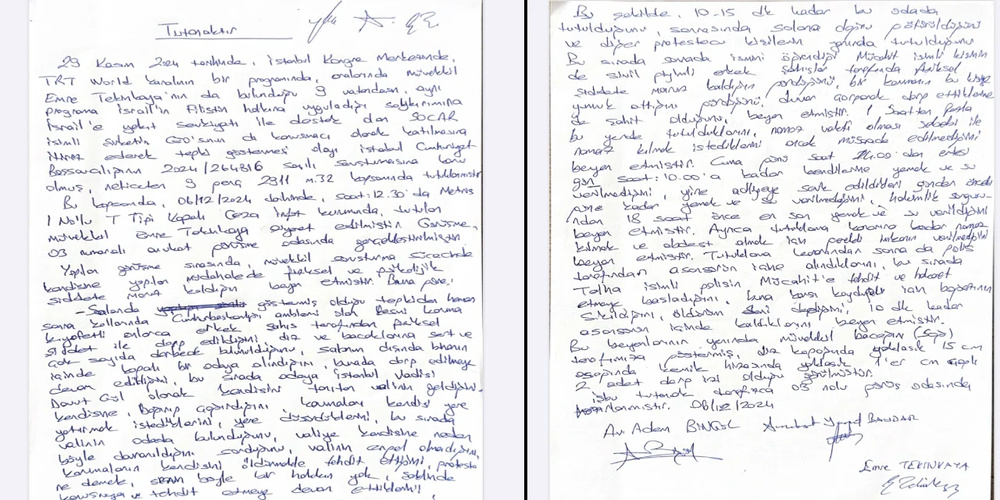 Tutanaktır
29 Kasım 2024 tarihinde, İstanbul Kongre Merkezinde,
TRT World kanalının bir programında, aralarında müvekkil
Emre Tekinkaya'nın da bulunduğu 9 vatandaş, aynı
programa İsrail'in Filistin halkına uyguladığı saldırılarında
İsrail'e yakıt sevkiyatı ile destek olan SOCAR
isimli şirketin CEO'sunun da konuşmacı olarak katılmasına
itiraz ederek tepki göstermesi olayı İstanbul Cumhuriyet
Başsavcılığının 2024/264816 sayılı soruşturmasına konu
olmuş, neticeten 9 genç 2911 m.32 kapsamında tutuklanmıştır.
Bu kapsamda, 06/12/2024 tarihinde, saat: 12.30'da Metris
1 No'lu T Tipi Kapalı Ceza İnfaz kurumunda, tutulan
müvekkil Emre Tekinkaya ziyaret edilmiştir. Görüşme,
03 numaralı avukat görüşme odasında gerçekleştirilmiştir.
Yapılan görüşme sırasında, müvekkil soruşturma sürecinde
kendisine yapılan müdahalede fiziksel ve psikolojik
şiddete maruz kaldığını beyan etmiştir. Buna göre;
-Salonda göstermiş olduğu tepkiden hemen
sonra kollarında Cumhurbaşkanlığı amblemi olan Resmi koruma
kıyafetli onlarca erkek şahıs tarafından fiziksel
şiddet ile darp edildiğini, diz ve bacaklarına sert ve
çok sayıda darbede bulunulduğunu, salonun dışında binanın
içinde kapalı bir odaya alındığını, burada darp edilmeye
devam edildiğini, bu sırada odaya İstanbul Valisi
Davut Gül olarak kendisini tanıtan valinin geldiğini.
kendisine, korumalar kendisi yere
yatırmak istediklerini, yere düşürdüklerini, bu sırada
valinin odada bulunduğunu, valiye kendisine neden
böyle davranıldığını sorduğunu, valinin engel olmadığını,
korumaların kendisini öldürmekle tehdit ettiğini, protesto
ne demek, senin böyle bir hakkın yok, şeklinde
konuşmaya ve tehdit etmeye devam ettiklerini,
Bu şekilde, 10-15 dk kadar bu odada
tutulduğunu, sonrasında salona doğru götürüldüğünü
ve diğer protestocu kişilerin yanında tutulduğunu
Bu sırada orada ismini öğrendiği Mücahit isimli kişinin
de sivil giyimli erkek şahıslar tarafından fiziksel
şiddete maruz kaldığını gördüğünü, bir korumanın bu kişiye
yumruk attığını gördüğünü, duvara çarparak darp ettiklerine
de şahit olduğunu, beyan etmiştir. 1 saatten fazla
bu yerde tutulduklarını, namaz vakti olması sebebi ile
namaz kılmak istediklerini ancak müsaade edilmediğini
beyan etmiştir. Cuma günü saat 14.00'dan ertesi
gün saat: 10.00'a kadar kendilerine yemek ve su
verilmediğini, yine adliyeye sevk edildikleri günden önceki
güne kadar yemek ve su verilmediğini, hakimlik sorgusu-
ndan 18 saat önce en son yemek ve su verildiğini
beyan etmiştir. Ayrıca tutuklama kararına kadar namaz
kılmak ve abdest almak için gerekli imkanın verilmediğini
beyan etmiştir. Tutuklama kararından sonra da polis
tarafından asansörün içine alındıklarını, bu sırada
Talha isimli polisin Mücahit'e tehdit ve hakaret
etmeye başladığını, buna karşı koyduğu için boğazının
sıkıldığını, öldürürüm seni dediğini, 10 dk kadar
asansörün içinde kaldıklarını beyan etmiştir.
Bu beyanlarının yanında müvekkil bacağını (sağ)
tarafımıza göstermiş, diz kapağında yaklaşık 15 cm
aşağıda kemik hizasında yaklaşık 1'er cm çaplı
2 adet darp izi olduğu görülmüştür.
İşbu tutanak tarafımızca 03 nolu görüş odasında
hazırlanmıştır. 06/12/2024
Av. Adem BİNGÖL Avukat
Emre TEKİNKAYA